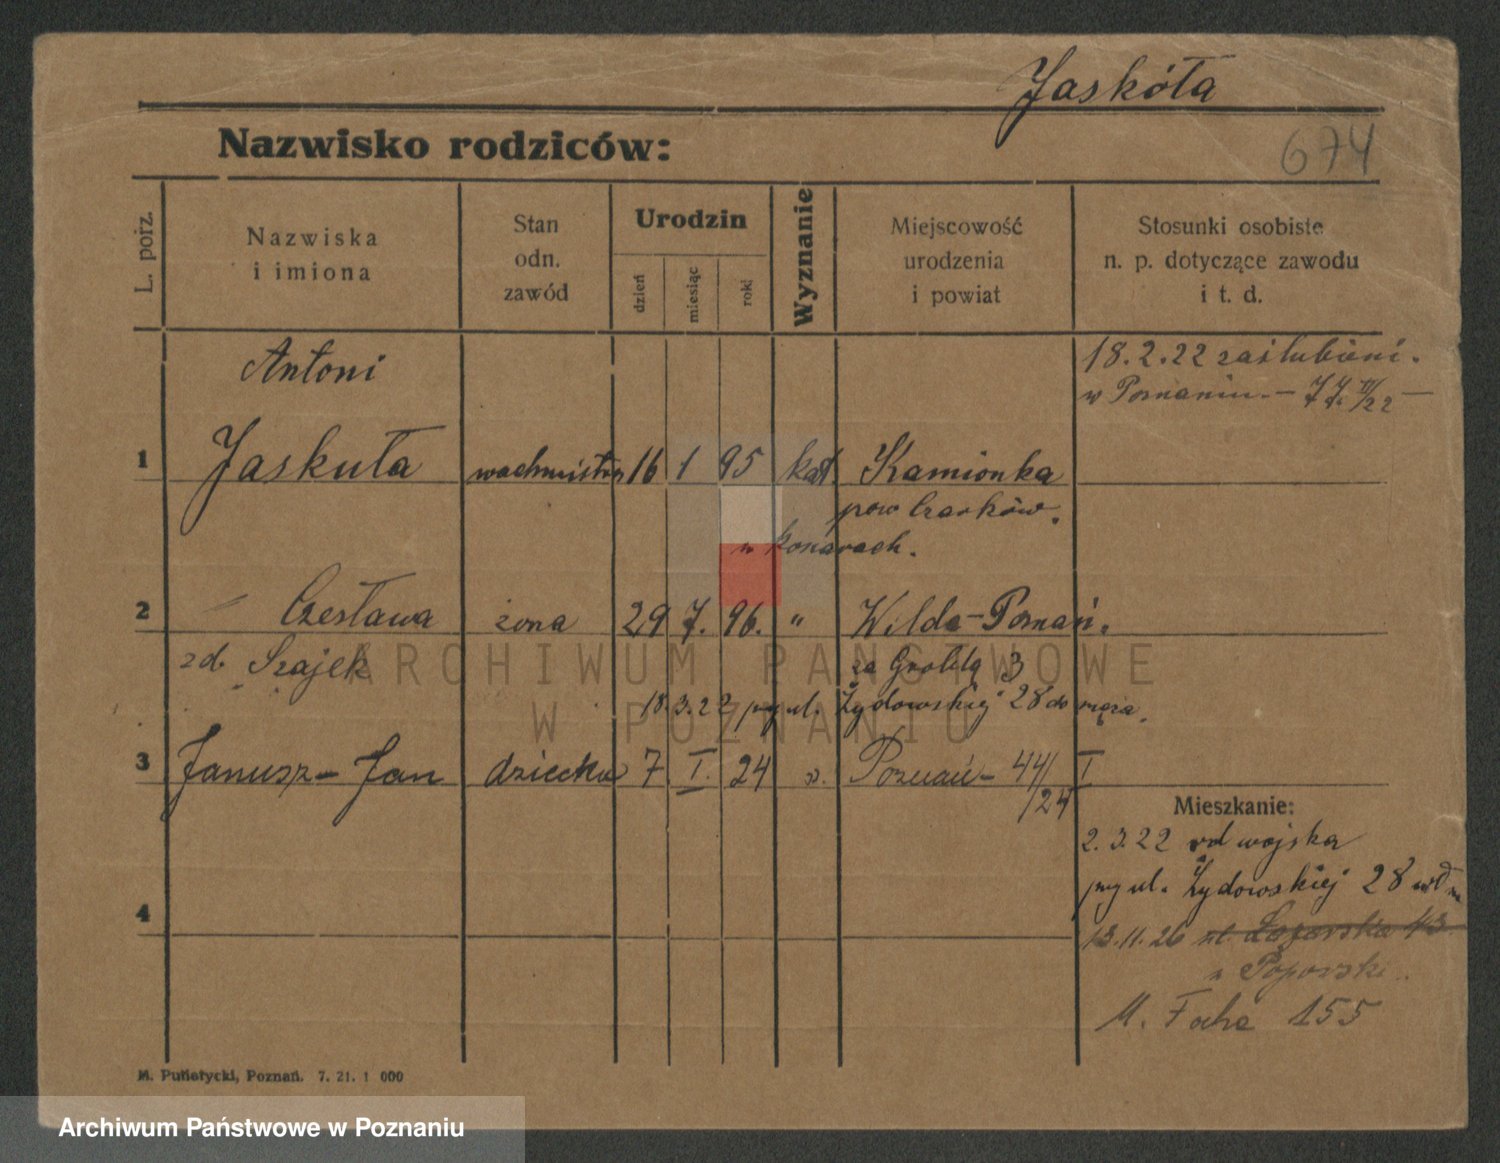 Jaskóła
Nazwisko rodziców:
674
L. porz.
Nazwiska
i imiona
Stan
odn.
zawód
Urodzin
dzień
miesiąc
roki
Wyznanie
Miejscowość
urodzenia
i powiat
Stosunki osobiste
n. p. dotyczące zawodu
i t. d.
Antoni
18.2.22 zaślubieni.
w Poznaniu.
1 Jaskuła wachmistrz 16 1 95 kat. Kamionka
pow Czarków.
w Konarach.
2 Czesława żona 29 7. 96. " Wilda-Poznań.
zd. Szajek za Groblą 3
18.3.22 przy ul. Żydowskiej 28 do męża.
3 Janusz-Jan dziecko 7 I. 24 Poznań- 44/I
/24
Mieszkanie:
2.3.22 od wojska
przy ul. Żydowskiej 28
4
13.11.26
M. Focha 155
M. Putiatycki, Poznań. 7. 21. 1 000
ARCHIWUM PAŃSTWOWE
W POZNANIU
Archiwum Państwowe w Poznaniu